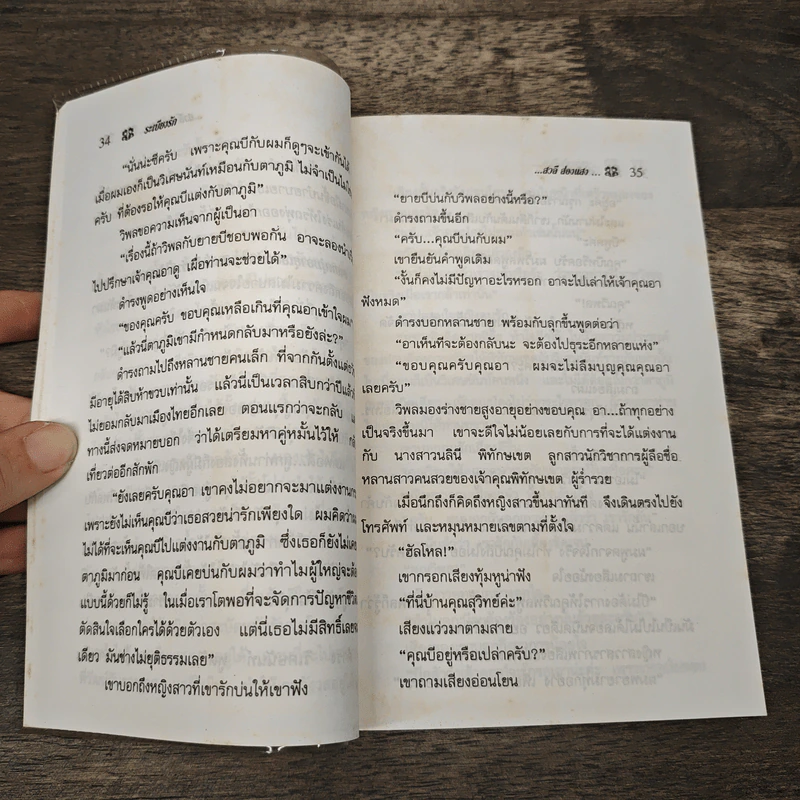 34 ระเบียงรัก
“นั่นน่ะซีครับ เพราะคุณบีกับผมก็ดูๆจะเข้ากันได้
เมื่อผมเองก็เป็นวิเศษนันท์เหมือนกับตาภูมิ ไม่จำเป็นไม่ใช่
ครับ ที่ต้องรอให้คุณบีแต่งกับตาภูมิ”
วิพลขอความเห็นจากผู้เป็นอา
“เรื่องนี้ถ้าวิพลกับยายบีชอบพอกัน อาจะลองนำเรื่อง
ไปปรึกษาเจ้าคุณอาดู เผื่อท่านจะช่วยได้”
ดำรงพูดอย่างเห็นใจ
“ขอบคุณครับ ขอบคุณเหลือเกินที่คุณอาเข้าใจผม”
“แล้วนี่ตาภูมิเขามีกำหนดกลับมาหรือยังล่ะ?”
ดำรงถามไปถึงหลานชายคนเล็ก ที่จากกันตั้งแต่
มีอายุได้สิบห้าขวบเท่านั้น แล้วนี่เป็นเวลาสิบกว่าปีแล้วที่
ไม่ยอมกลับมาเมืองไทยอีกเลย ตอนแรกว่าจะกลับ
ทางนี้ส่งจดหมายบอก ว่าได้เตรียมหาคู่หมั้นไว้ให้
เที่ยวต่ออีกสักพัก
“ยังเลยครับคุณอา เขาคงไม่อยากจะมาแต่งงาน
เพราะยังไม่เห็นคุณบีว่าเธอสวยน่ารักเพียงใด ผมคิดว่า
ไม่ได้ที่จะเห็นคุณบีไปแต่งงานกับตาภูมิ ซึ่งเธอก็ยังไม่เคย
ตาภูมิมาก่อน คุณบีเคยบ่นกับผมว่าทำไมผู้ใหญ่จะต้อง
แบบนี้ด้วยก็ไม่รู้ ในเมื่อเราโตพอที่จะจัดการปัญหาชีวิต
ตัดสินใจเลือกใครได้ด้วยตัวเอง แต่นี่เธอไม่มีสิทธิ์เลย
เดียว มันช่างไม่ยุติธรรมเลย”
เขาบอกถึงหญิงสาวที่เขารักบ่นให้เขาฟัง
...สวลี ส่องแสง ... 35
“ยายบีบ่นกับวิพลอย่างนี้หรือ?”
ดำรงถามขึ้นอีก
“ครับ...คุณบีบ่นกับผม”
เขายืนยันคำพูดเดิม
“งั้นก็คงไม่มีปัญหาอะไรหรอก อาจะไปเล่าให้เจ้าคุณอา
ฟังหมด”
ดำรงบอกหลานชาย พร้อมกับลุกขึ้นพูดต่อว่า
“อาเห็นทีจะต้องกลับนะ จะต้องไปธุระอีกหลายแห่ง”
“ขอบคุณครับคุณอา ผมจะไม่ลืมบุญคุณคุณอา
เลยครับ”
วิพลมองร่างชายสูงอายุอย่างขอบคุณ อา...ถ้าทุกอย่าง
เป็นจริงขึ้นมา เขาจะดีใจไม่น้อยเลยกับการที่จะได้แต่งงาน
กับ นางสาวนลินี พิทักษเขต ลูกสาวนักวิชาการผู้ลือชื่อ
หลานสาวคนสวยของเจ้าคุณพิทักษเขต ผู้ร่ำรวย
เมื่อนึกถึงก็คิดถึงหญิงสาวขึ้นมาทันที จึงเดินตรงไปยัง
โทรศัพท์ และหมุนหมายเลขตามที่ตั้งใจ
“ฮัลโหล!”
เขากรอกเสียงทุ้มหูน่าฟัง
“ที่นี่บ้านคุณสุวิทย์ค่ะ”
เสียงแว่วมาตามสาย
“คุณบีอยู่หรือเปล่าครับ?”
เขาถามเสียงอ่อนโยน